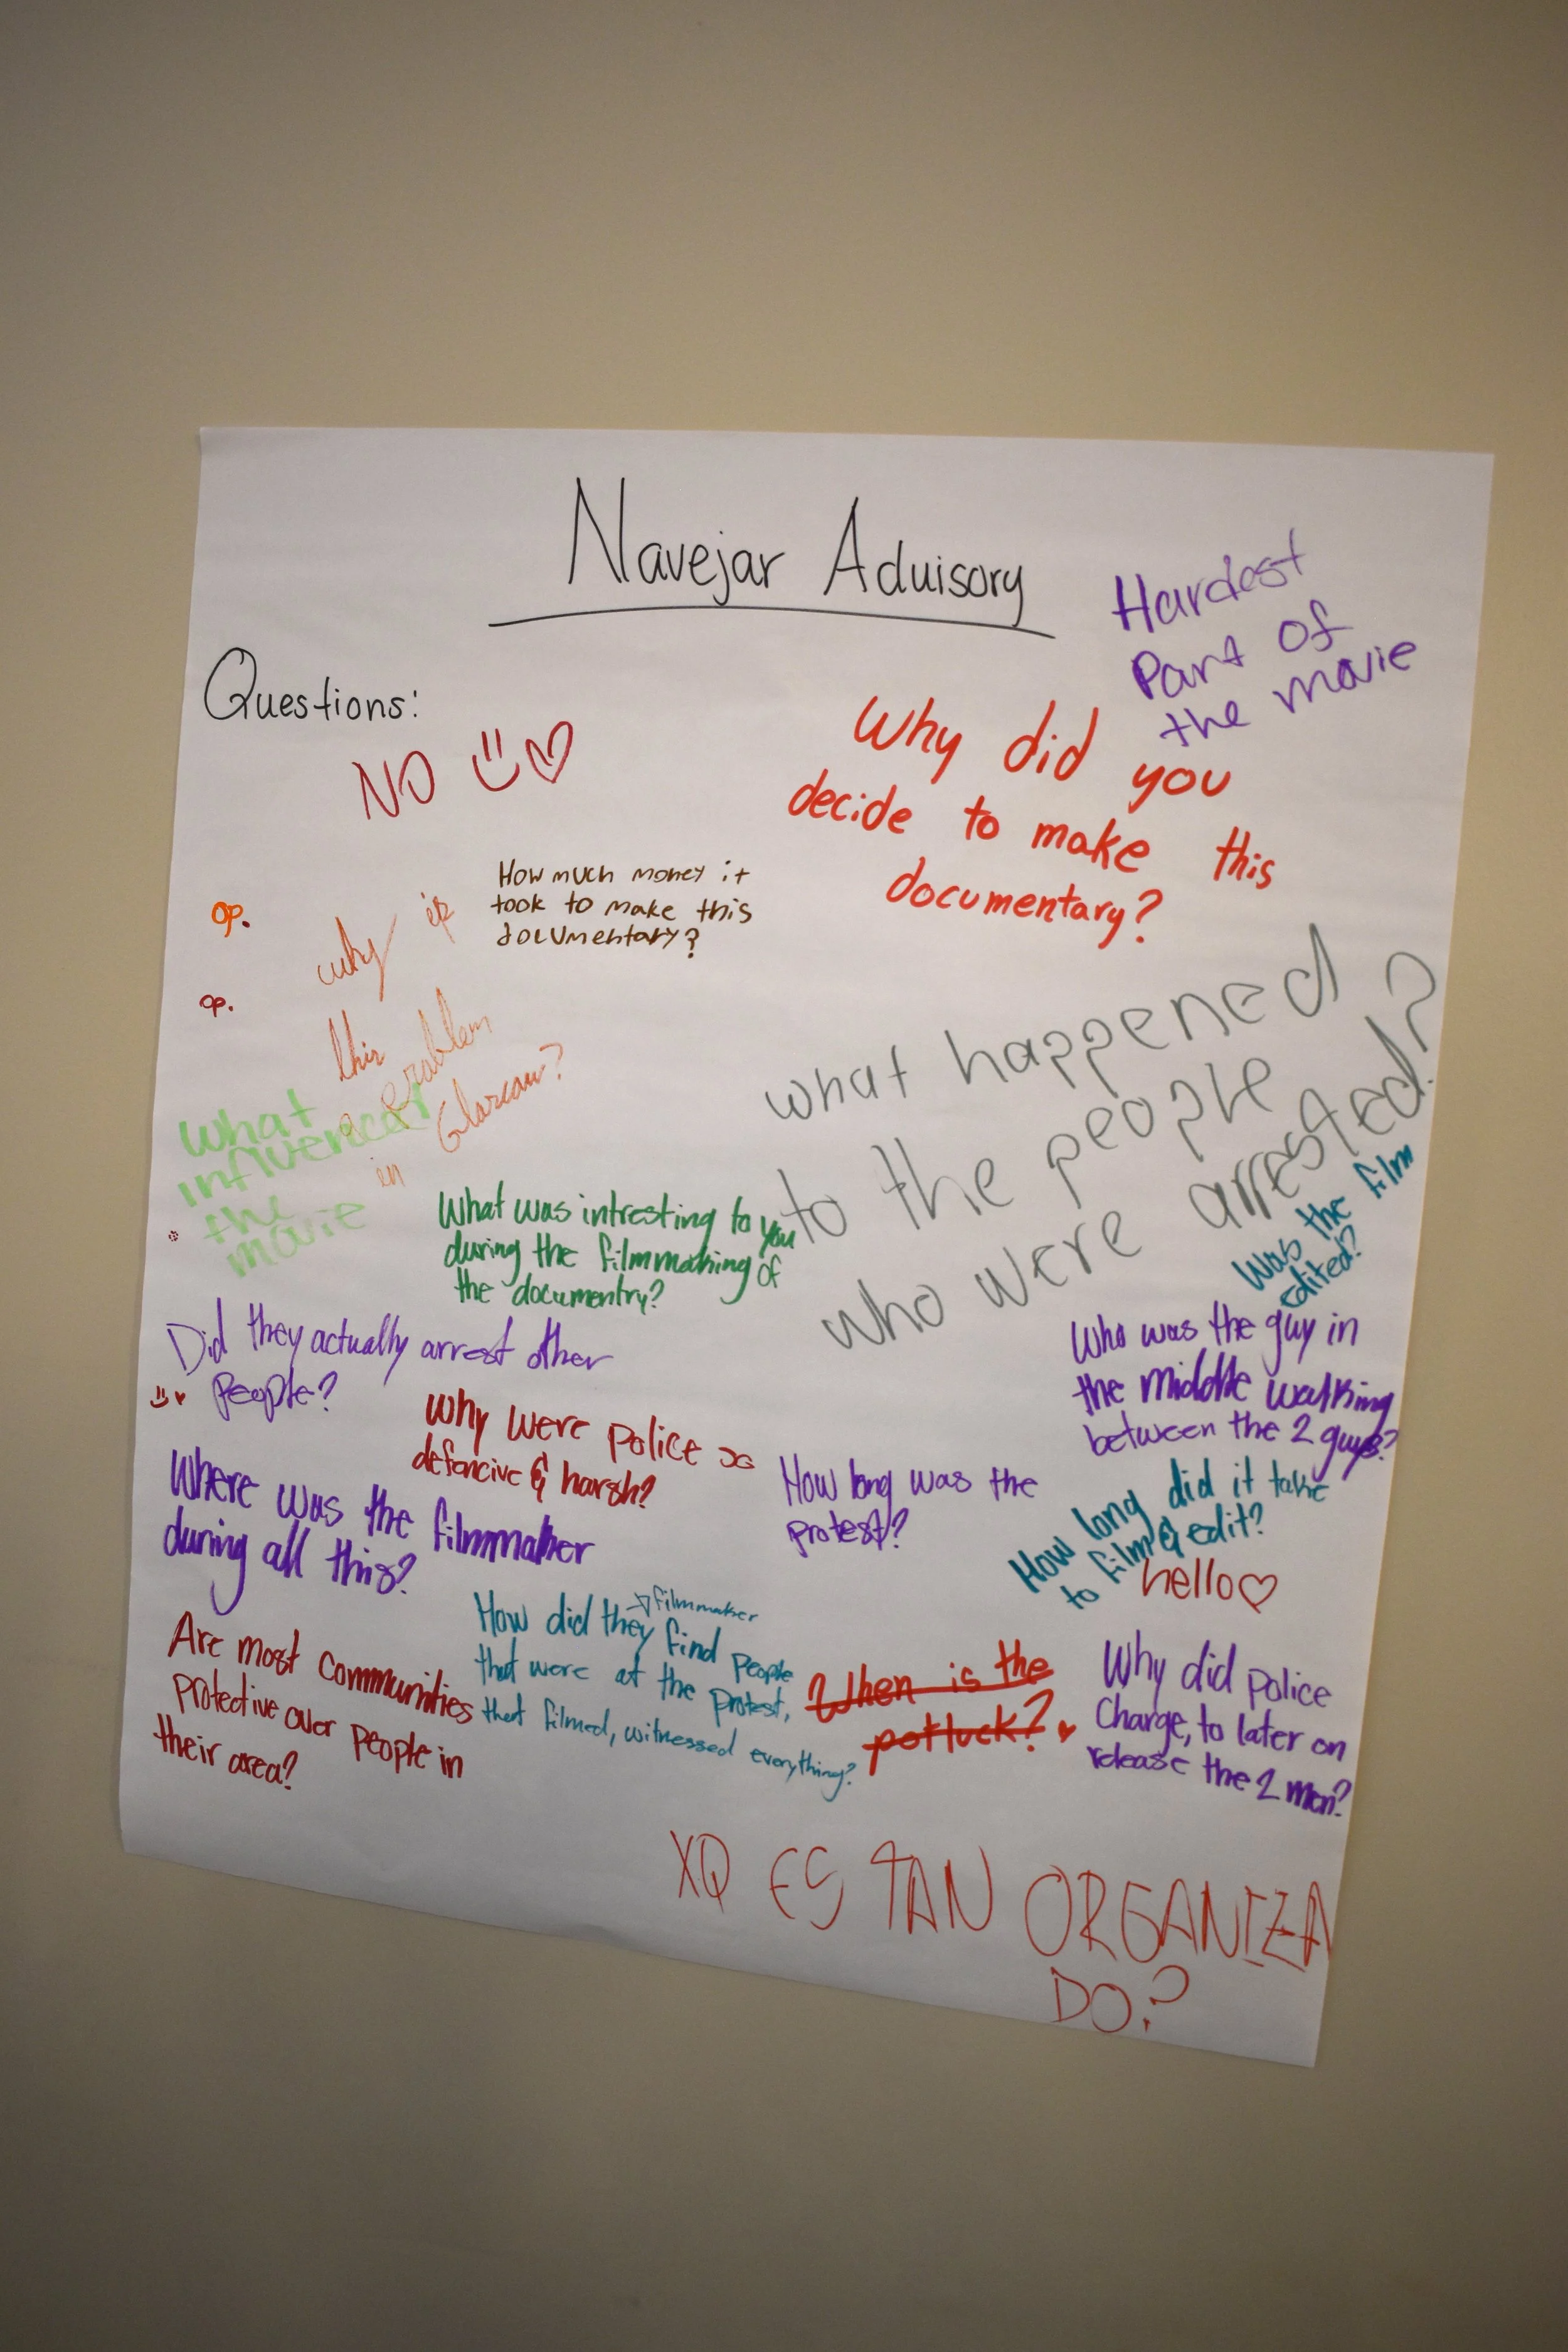 Navejar Aduisory
Hardest
Part of
the movie
Questions:
NO
Why did you
decide to make this
documentary?
How much money it
took to make this
documentary?
op.
why is
this
a problem
in Glascow?
op.
what happened
to the people
who were arrested?
What
influenced
the
movie
What was intresting to you
during the filmmaking of
the documentry?
Was the film
edited?
Did they actually arrest other
People?
Who was the guy in
the middle walking
between the 2 guys?
Why were police so
defencive & harsh?
Where was the filmmaker
during all this?
How long was the
protest?
How long did it take
to film & edit?
hello
Are most communities
protective over people in
their area?
filmmaker
How did they find people
that were at the protest,
that filmed, witnessed everything?
When is the
potluck?
Why did police
Charge, to later on
release the 2 men?
XQ ES TAN ORGANIZA
DO?